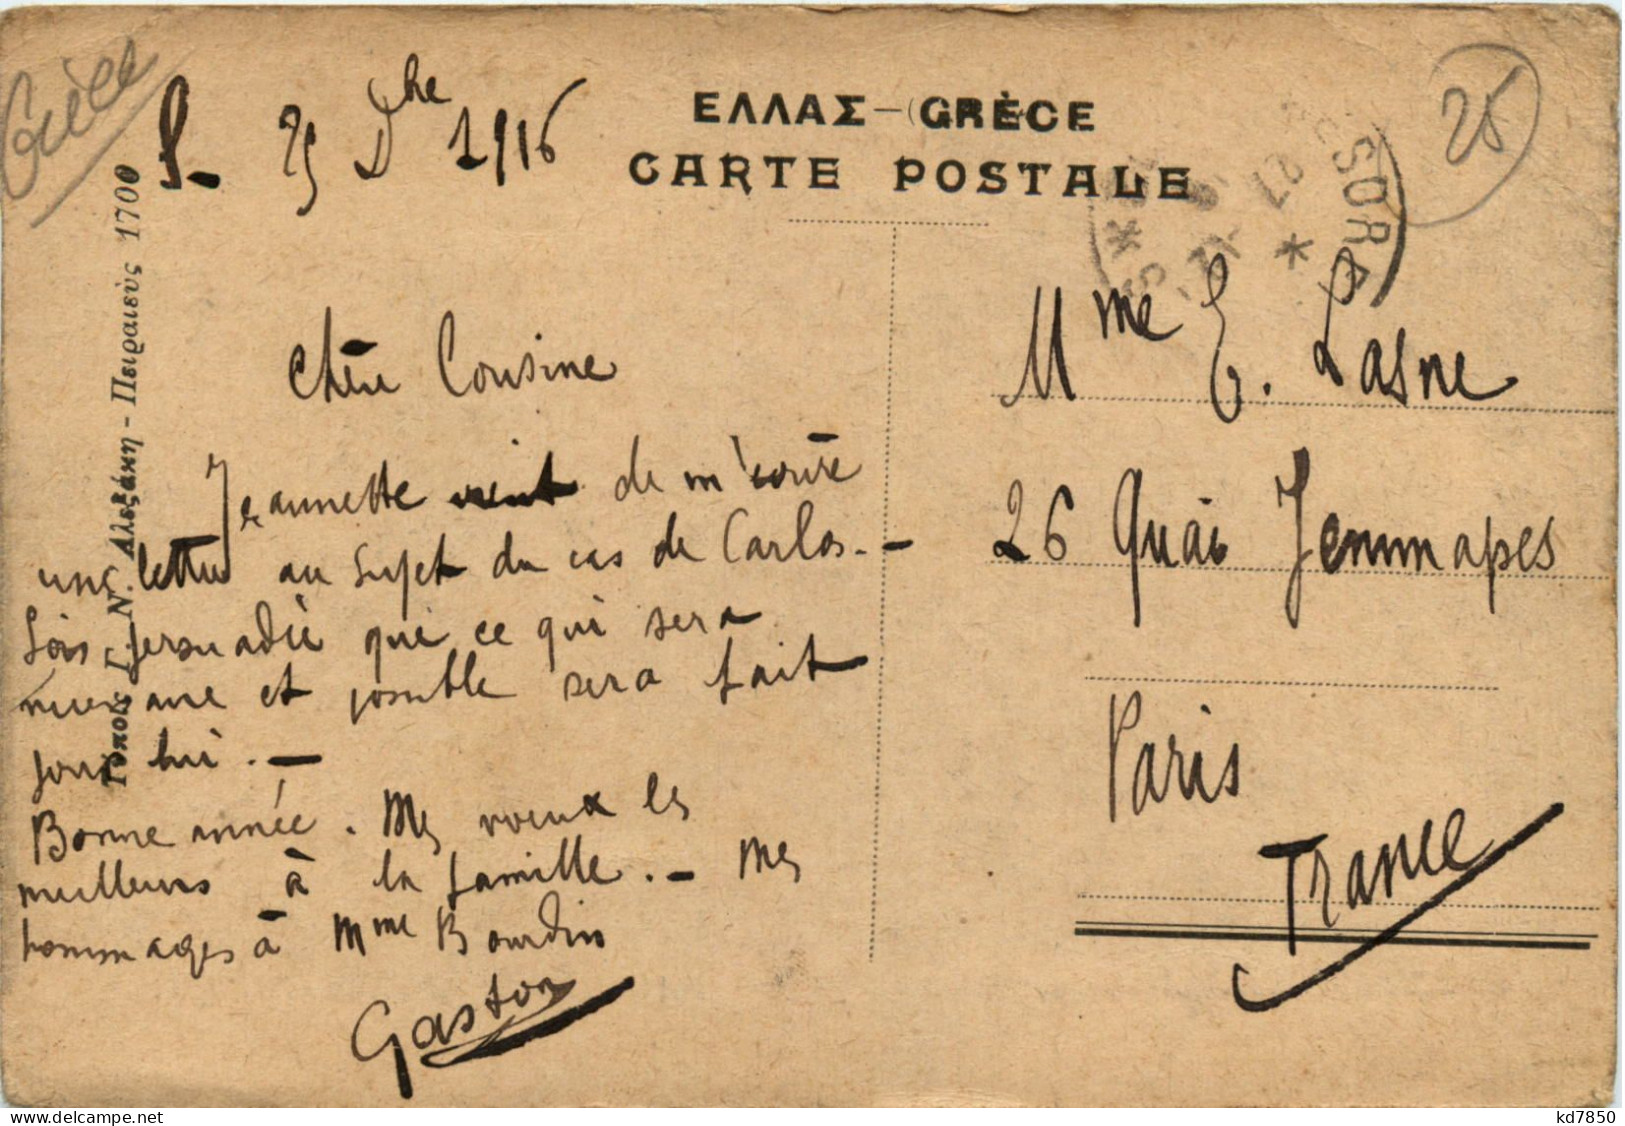 Grèce
S. 25 Dbre 1916
ΕΛΛΑΣ – GRÈCE
CARTE POSTALE
25
Τύποις Γ. Ν. Αλεξάκη - Πειραιεύς 1700
TRESOR
27
Chère Cousine
Jeannette vient de m'écrire
une lettre au sujet du cas de Carlos. –
Sois persuadée que ce qui sera
et possible sera fait
pour lui. –
Bonne année. Mes voeux les
meilleurs à la famille. – Mes
hommages à Mme Bourdin
Gaston
Mme E. Lasne
26 Quai Jemmapes
Paris
France
www.delcampe.net
kd7850